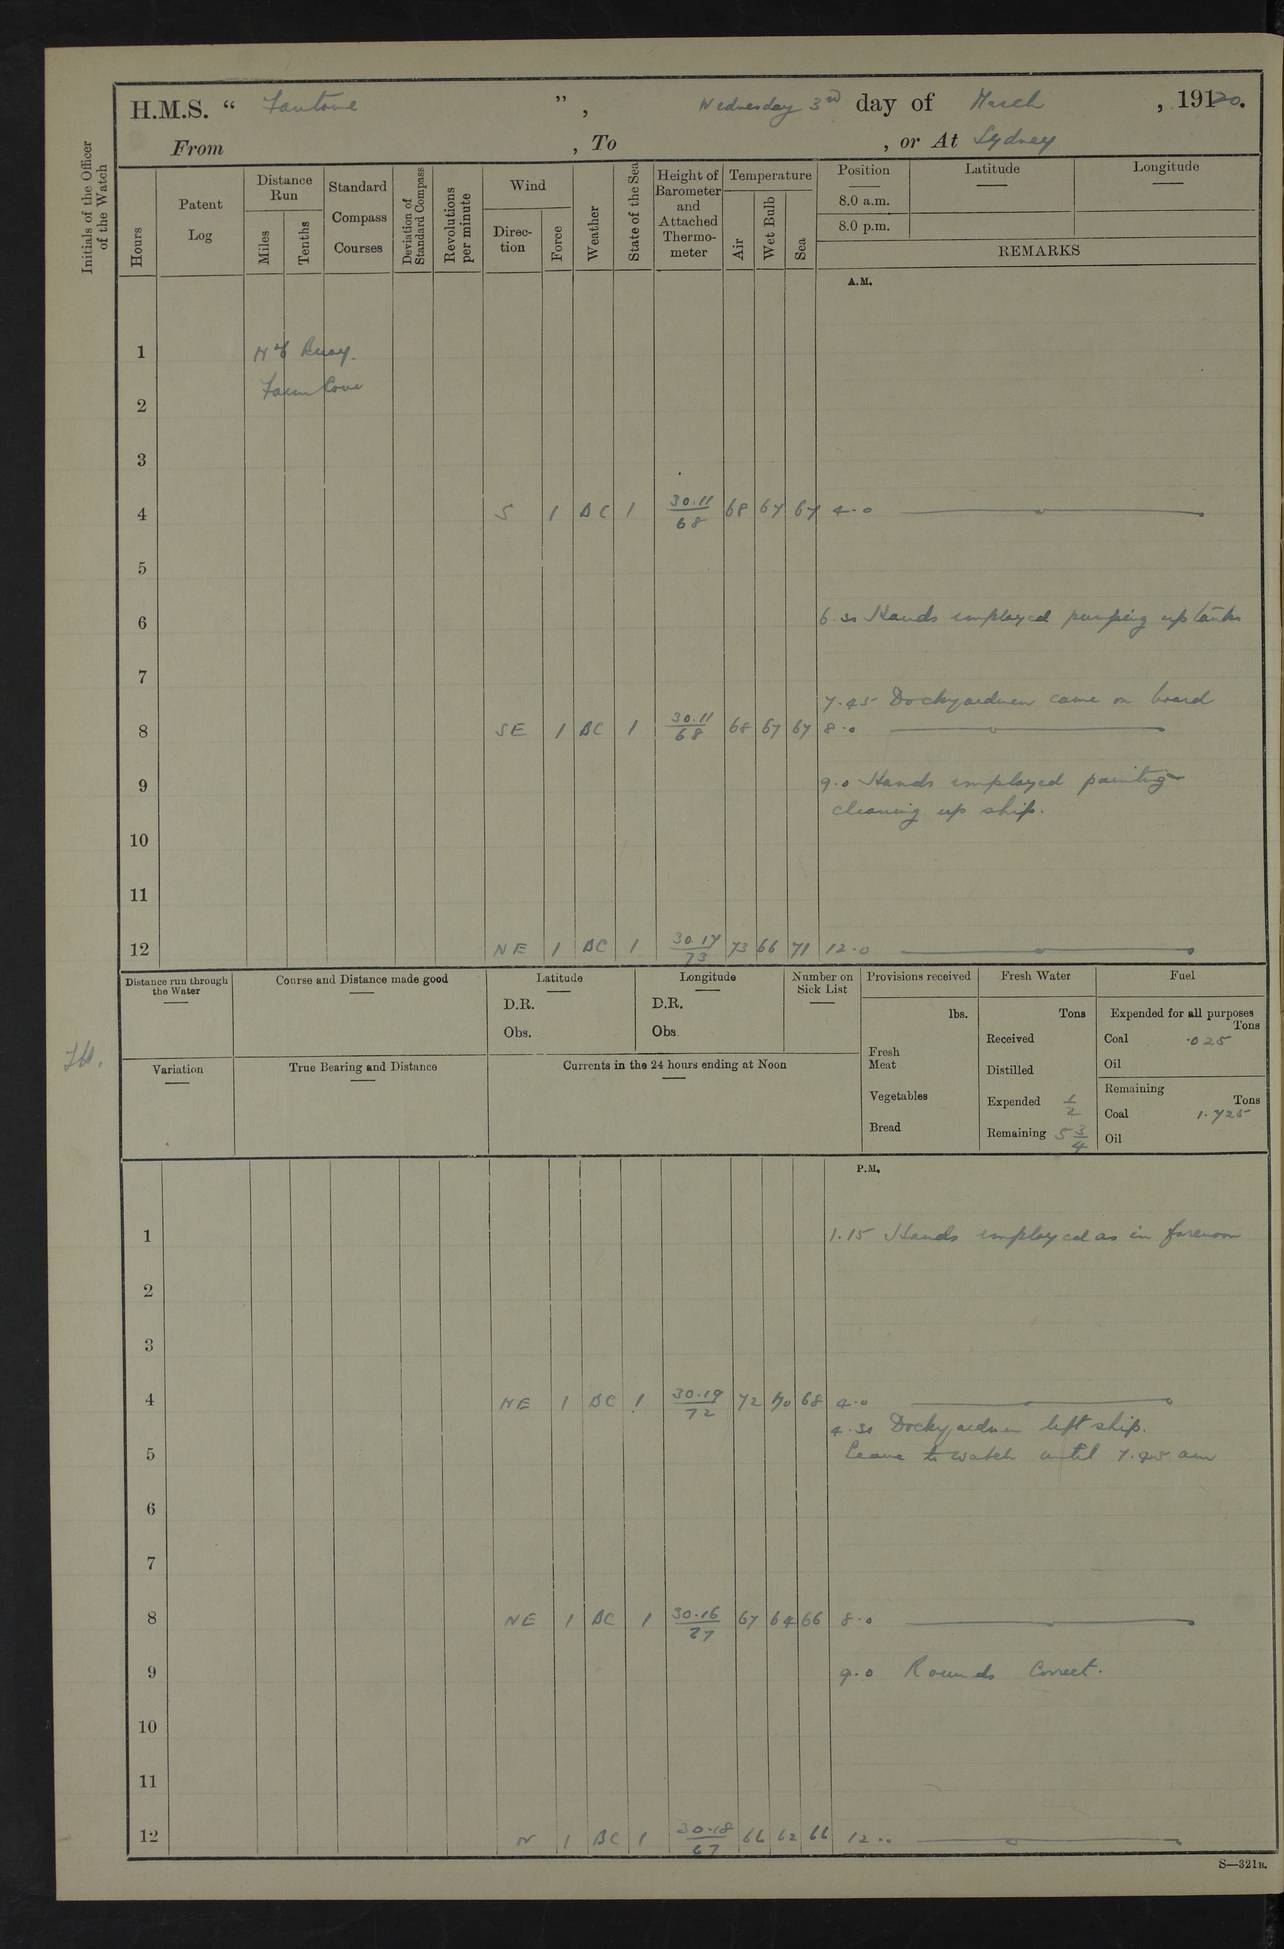 H.M.S. " Fantome ", Wednesday 3rd day of March, 1920.
From , To , or At Sydney
Initials of the Officer of the Watch
Hours
Patent Log
Distance Run
Miles
Tenths
Standard Compass Courses
Deviation of Standard Compass
Revolutions per minute
Wind
Direction
Force
Weather
State of the Sea
Height of Barometer and Attached Thermometer
Temperature
Air
Wet Bulb
Sea
Position
8.0 a.m.
8.0 p.m.
Latitude
Longitude
REMARKS
A.M.
1 Buoy.
Farm Cove
2
3
4 S 1 BC 1 30.11/68 68 67 67 4.0
5
6 6.30 Hands employed pumping up tanks
7
7.45 Dockyardmen came on board
8 SE 1 BC 1 30.11/68 68 67 67 8.0
9 9.0 Hands employed painting
cleaning up ship.
10
11
12 NE 1 BC 1 30.17/73 73 66 71 12.0
Distance run through the Water
Course and Distance made good
Latitude
D.R.
Obs.
Longitude
D.R.
Obs.
Number on Sick List
Provisions received
lbs.
Fresh Meat
Vegetables
Bread
Fresh Water
Tons
Received
Distilled
Expended 1/2
Remaining 5 3/4
Fuel
Expended for all purposes
Tons
Coal .025
Oil
Remaining
Tons
Coal 1.725
Oil
Variation
True Bearing and Distance
Currents in the 24 hours ending at Noon
P.M.
1 1.15 Hands employed as in forenoon
2
3
4 NE 1 BC 1 30.19/72 72 70 68 4.0
4.30 Dockyardmen left ship.
5 Leave to watch until 7.45 am
6
7
8 NE 1 BC 1 30.16/27 67 64 66 8.0
9 9.0 Rounds Correct.
10
11
12 N 1 BC 1 30.18/67 66 62 66 12..
S—321B.